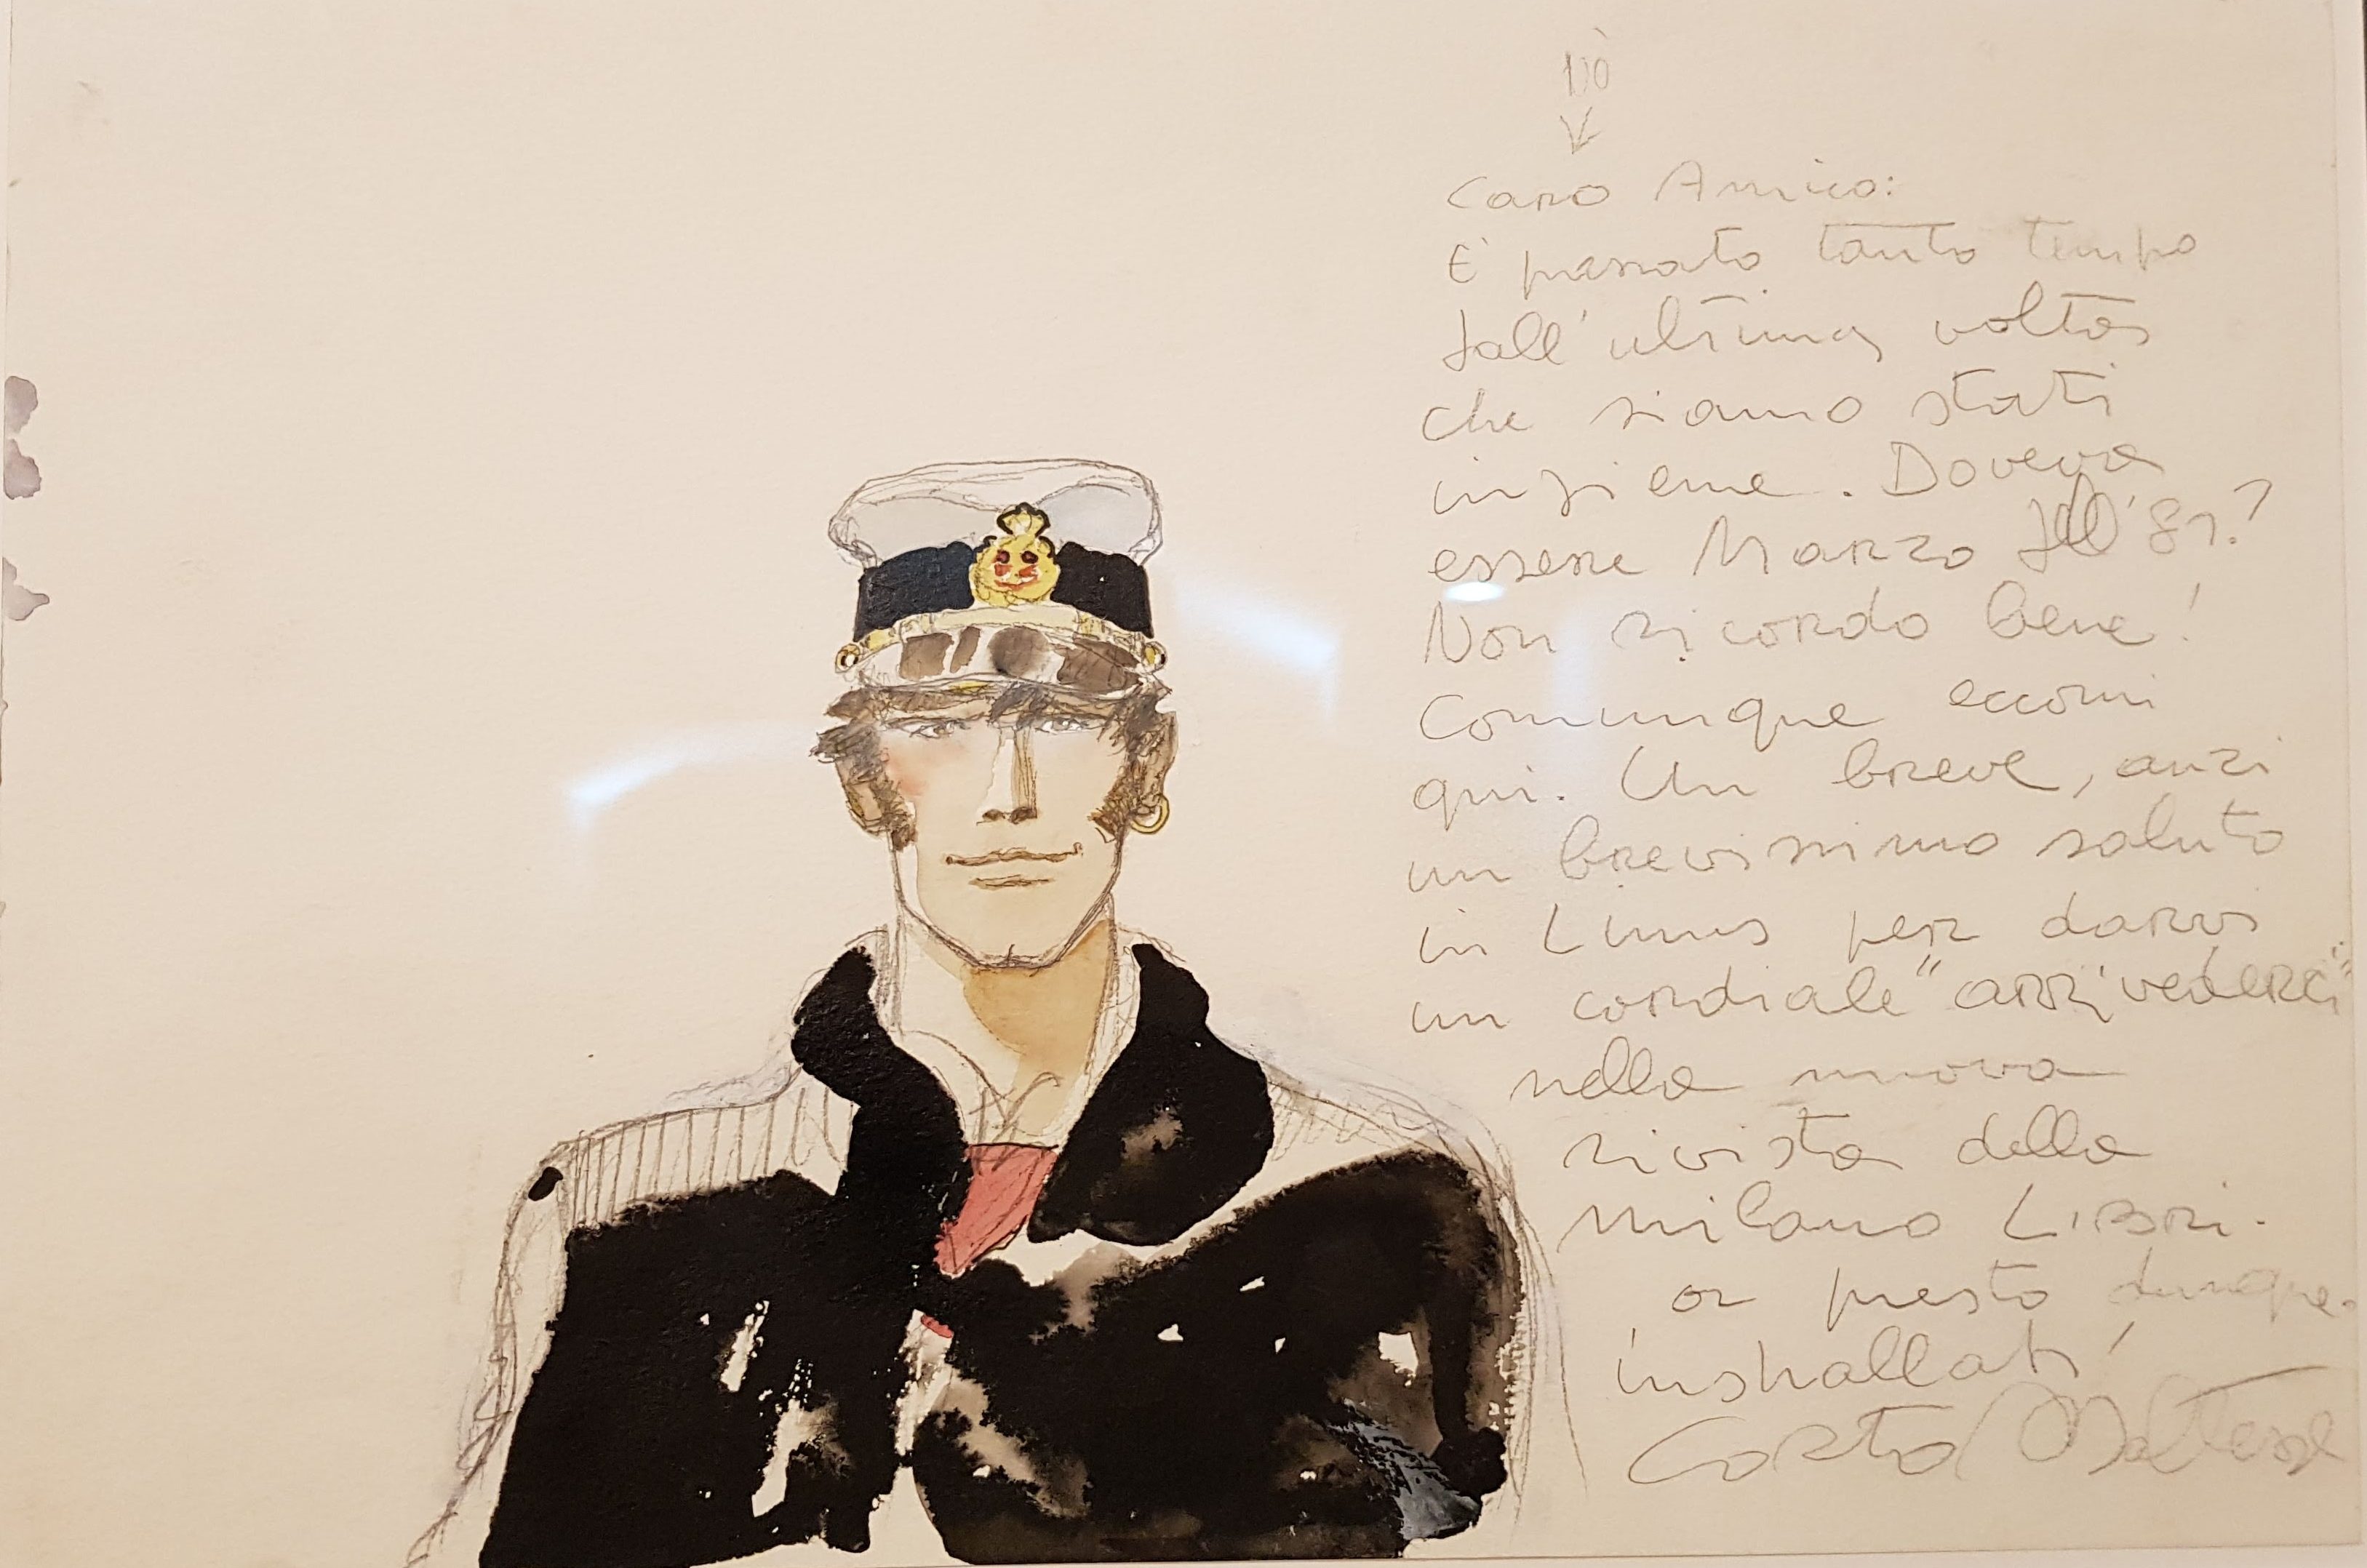 Caro Amico:
E' passato tanto tempo
dall'ultima volta
che siamo stati
insieme. Doveva
essere Marzo dell'81?
Non ricordo bene!
Comunque eccomi
qui. Un breve, anzi
un brevissimo saluto
in Linus per darvi
un cordiale "arrivederci"
nella nuova
rivista della
Milano Libri.
a presto dunque.
inshallah!
Corto Maltese